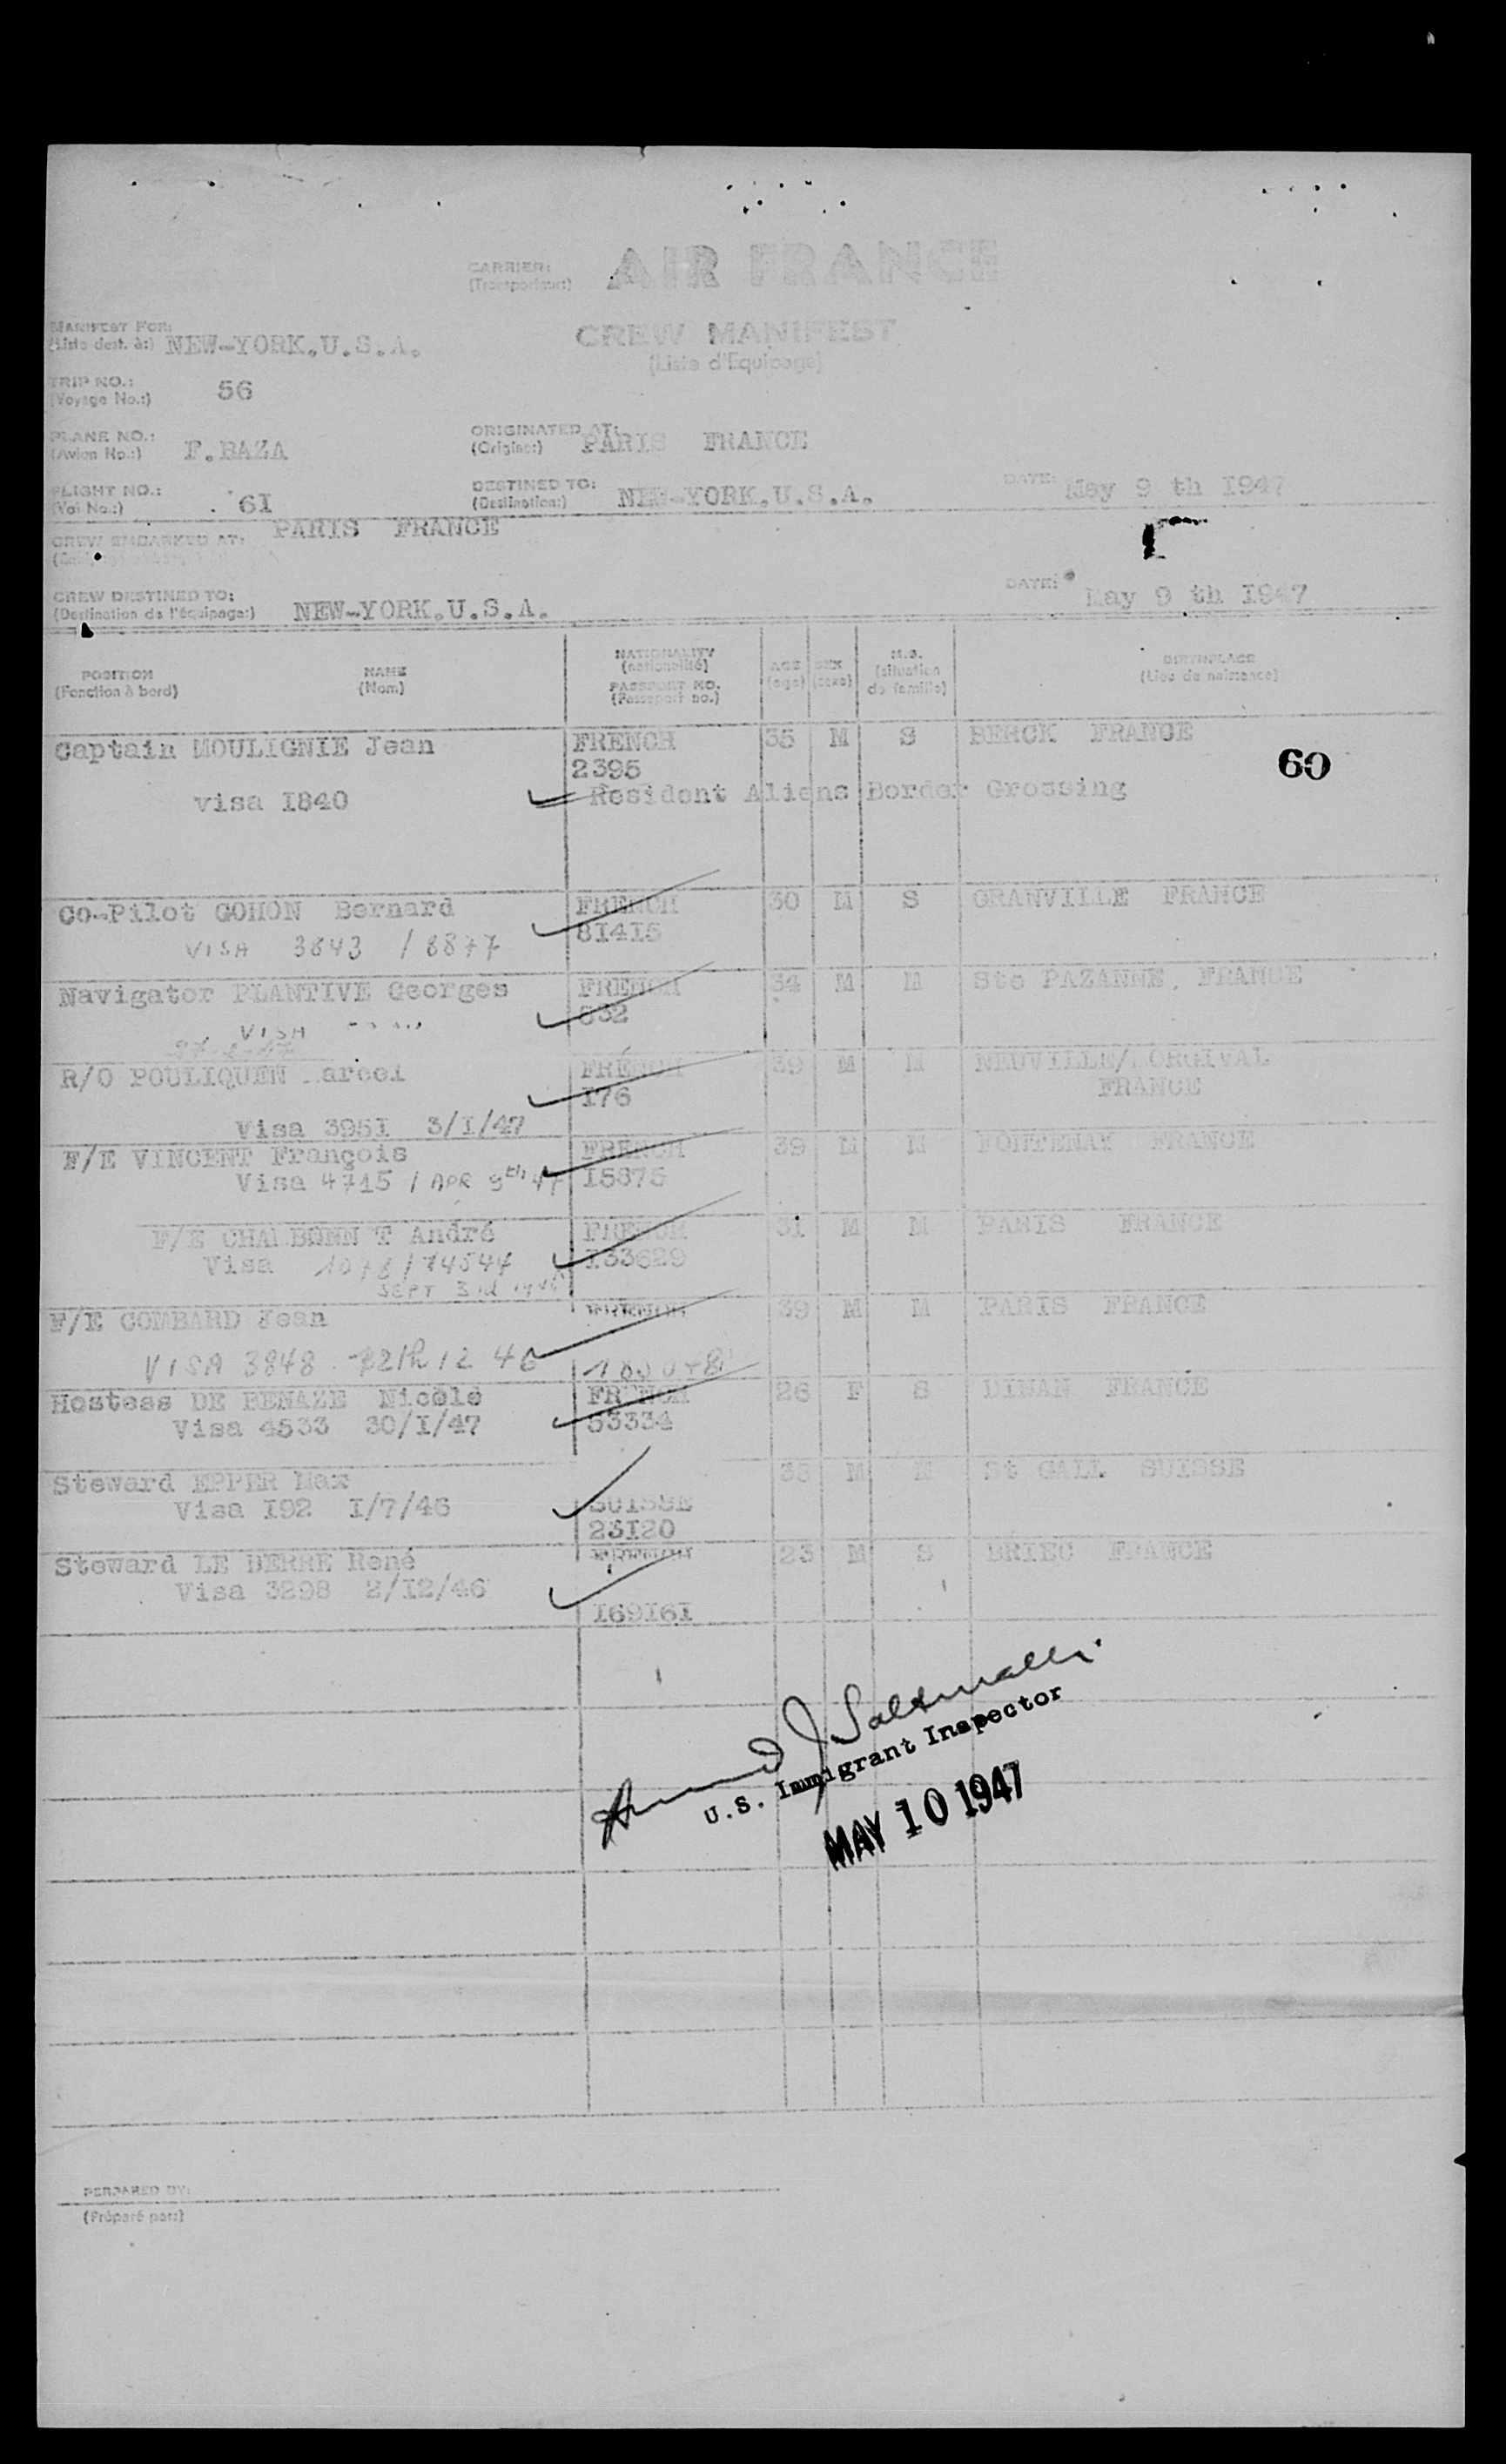 CARRIER: AIR FRANCE
(Transporteur:)
MANIFEST FOR: CREW MANIFEST
(Liste dest. à:) NEW-YORK.U.S.A.
(Liste d'Equipage)
TRIP NO.: 56
(Voyage No.:)
PLANE NO.: F.BAZA ORIGINATED AT: PARIS FRANCE
(Avion No.:) (Origine:)
FLIGHT NO.: 61 DESTINED TO: NEW-YORK.U.S.A. DATE: May 9 th 1947
(Vol No.:) (Destination:)
CREW EMBARKED AT: PARIS FRANCE
CREW DESTINED TO: DATE: May 9 th 1947
(Destination de l'équipage:) NEW-YORK.U.S.A.
POSITION NAME NATIONALITY AGE SEX M.S. BIRTHPLACE
(Fonction à bord) (Nom) (nationalité) (age) (sexe) (situation de famille) (Lieu de naissance)
PASSPORT NO.
(Passeport no.)
Captain MOULIGNIE Jean FRENCH 35 M S BERCK FRANCE
2395
60
visa I840 Resident Aliens Border Crossing
Co-Pilot GOHON Bernard FRENCH 30 M S GRANVILLE FRANCE
VISA 3843 / 8877 8I4I5
Navigator PLANTIVE Georges FRENCH 34 M M Ste PAZANNE, FRANCE
VISA 832
R/O POULIQUEN arcel FRENCH 39 M M NEUVILLE/
I76 FRANCE
Visa 395I 3/I/47
F/E VINCENT François FRENCH 39 M M FONTENAY FRANCE
Visa 4715 / APR 9th 47 I5875
F/E CHALBONN T André FRENCH 31 M M PARIS FRANCE
Visa 1078/74544 I33629
SEPT 3rd
F/E COMBARD Jean FRENCH 39 M M PARIS FRANCE
VISA 3848 12 46
Hostess DE BENAZE Nicole FRENCH 26 F S DINAN FRANCE
Visa 4533 30/I/47 53334
Steward EPPER Max 35 M M St GALL SUISSE
Visa I92 I/7/46 SUISSE
23I20
Steward LE BERRE René FRENCH 23 M S BRIEC FRANCE
Visa 3298 2/I2/46
I69I6I
U.S. Immigrant Inspector
MAY 10 1947
PERPARED BY:
(Préparé par:)